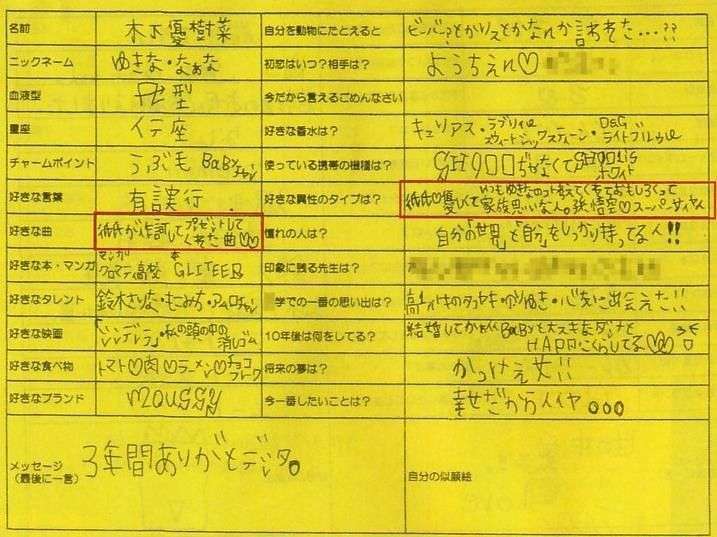 名前 木下優樹菜
自分を動物にたとえると ビーバー?とかリスとかなんか言われた…??
ニックネーム ゆきな・なぁな
初恋はいつ?相手は? ようちえん♡
血液型 型
今だから言えるごめんなさい
星座 イテ座
好きな香水は? キュリアス・ラブリィ D&G ライトブルゥ
チャームポイント うぶ毛 BaBy
使っている携帯の機種は? SH900じゃなくてSH901is ホワイト
好きな言葉 有言実行
好きな異性のタイプは? いつもゆきなのコト考えてくれておもしろくって
優しくて家族思いな人。孫悟空♡スーパーサイヤ人
好きな曲 が作詞してプレゼントして
くれた曲♡♡
憧れの人は? 自分の「世界」と「自分」をしっかり持ってる人!!
好きな本・マンガ マンガ クロマティ高校 本 GLITEER
印象に残る先生は?
好きなタレント 鈴木さりな・もこみち・アムロチャン
学での一番の思い出は? に出会えた!!
好きな映画 「 」・私の頭の中の
消しゴム
10年後は何をしてる? 結婚してかわいいBaByと大スキなダンナと
HAPPにくらしてる♡♡
好きな食べ物 トマト♡肉♡ラーメン♡チョコ
フレーク
将来の夢は? かっけぇ女!!
好きなブランド moussy
今一番したいことは? 幸せだからイイヤ。。。
メッセージ
(最後に一言) 3年間ありがとデシタ。
自分の似顔絵